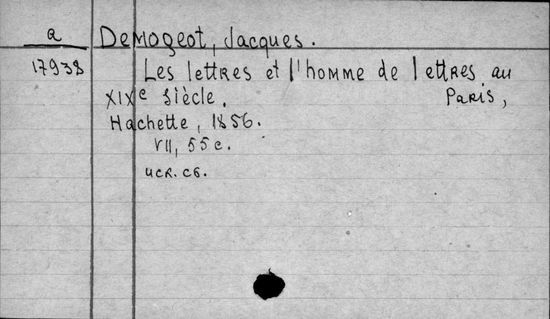 a Demogeot, Jacques.
17938 Les lettres et l'homme de lettres au
XIXe siècle. Paris,
Hachette, 1856.
VII, 55c.
UCR. CG.